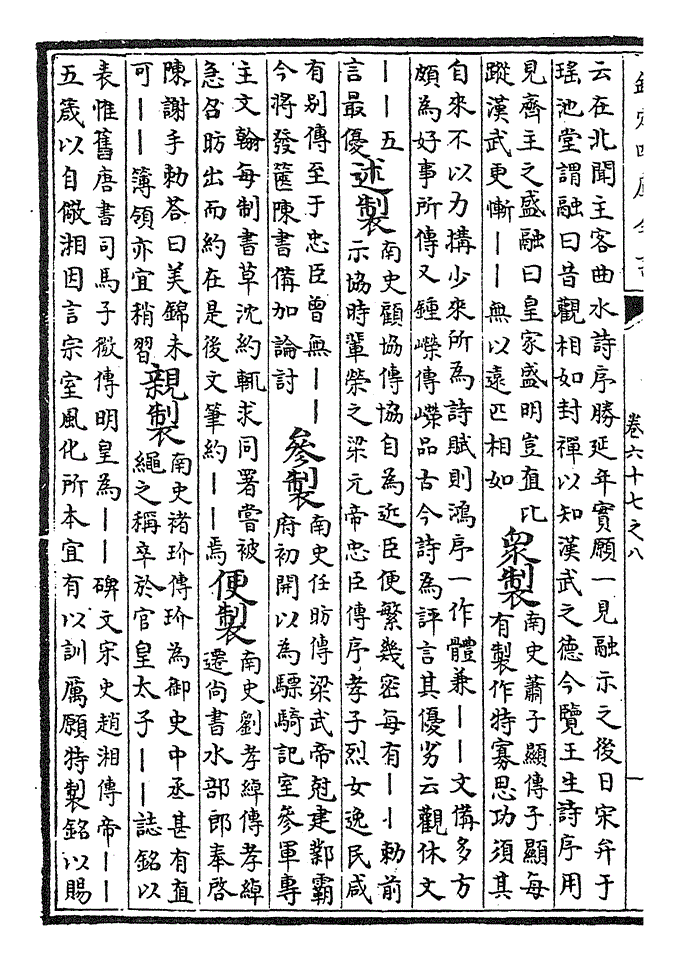 欽定四庫全書
卷六十七之八
一
云在北聞主客曲水詩序勝延年實願一見融示之後日宋弁于
瑤池堂謂融曰昔觀相如封禪以知漢武之德今覽王生詩序用
見齊主之盛融曰皇家盛明豈直比
蹤漢武更慚——無以遠匹相如
衆製
南史蕭子顯傳子顯每
有製作特寡思功須其
自來不以力搆少來所為詩賦則鴻序一作體兼——文備多方
頗為好事所傳又鍾嶸傳嶸品古今詩為評言其優劣云觀休文
——五
言最優
述製
南史顧協傳協自為近臣便繁幾密每有——丨勅前
示協時輩榮之梁元帝忠臣傳序孝子烈女逸民咸
有别傳至于忠臣曾無——
今將發篋陳書備加論討
參製
南史任昉傳梁武帝尅建鄴霸
府初開以為驃騎記室參軍專
主文翰每制書草沈約輒求同署嘗被
急召昉出而約在是後文筆約——焉
便製
南史劉孝綽傳孝綽
遷尚書水部郎奉啓
陳謝手勅荅曰美錦未
可——簿領亦宜稍習
親製
南史褚玠傳玠為御史中丞甚有直
繩之稱卒於官皇太子——誌銘以
表惟舊唐書司馬子微傳明皇為——碑文宋史趙湘傳帝——
五箴以自儆湘因言宗室風化所本宜有以訓厲願特製銘以賜